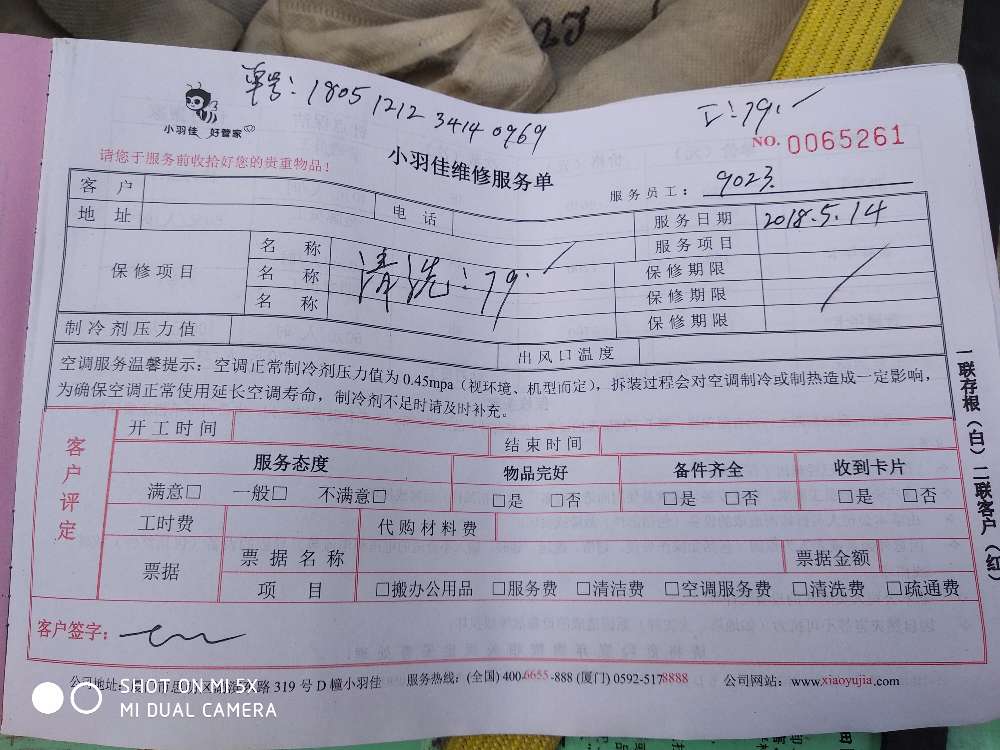 单号：1805 1212 3414 0969
工：79.
小羽佳 好管家
NO. 0065261
请您于服务前收拾好您的贵重物品！
小羽佳维修服务单
服务员工： 9023
客 户 电 话 服务日期 2018.5.14
地 址 服务项目
保修项目 名 称 清洗：79. 保修期限
名 称 保修期限
名 称 保修期限
制冷剂压力值 出风口温度
空调服务温馨提示：空调正常制冷剂压力值为0.45mpa（视环境、机型而定），拆装过程会对空调制冷或制热造成一定影响，
为确保空调正常使用延长空调寿命，制冷剂不足时请及时补充。
客户评定 开工时间 结束时间
服务态度 物品完好 备件齐全 收到卡片
满意□ 一般□ 不满意□ □是 □否 □是 □否 □是 □否
工时费 代购材料费
票据 票据名称 票据金额
项 目 □搬办公用品 □服务费 □清洁费 □空调服务费 □清洗费 □疏通费
客户签字：
一联存根（白）二联客户（红）
公司地址： 路319号D幢小羽佳 服务热线：(全国) 400-6655-888 (厦门) 0592-5178888 公司网站：www.xiaoyujia.com
SHOT ON MI 5X
MI DUAL CAMERA